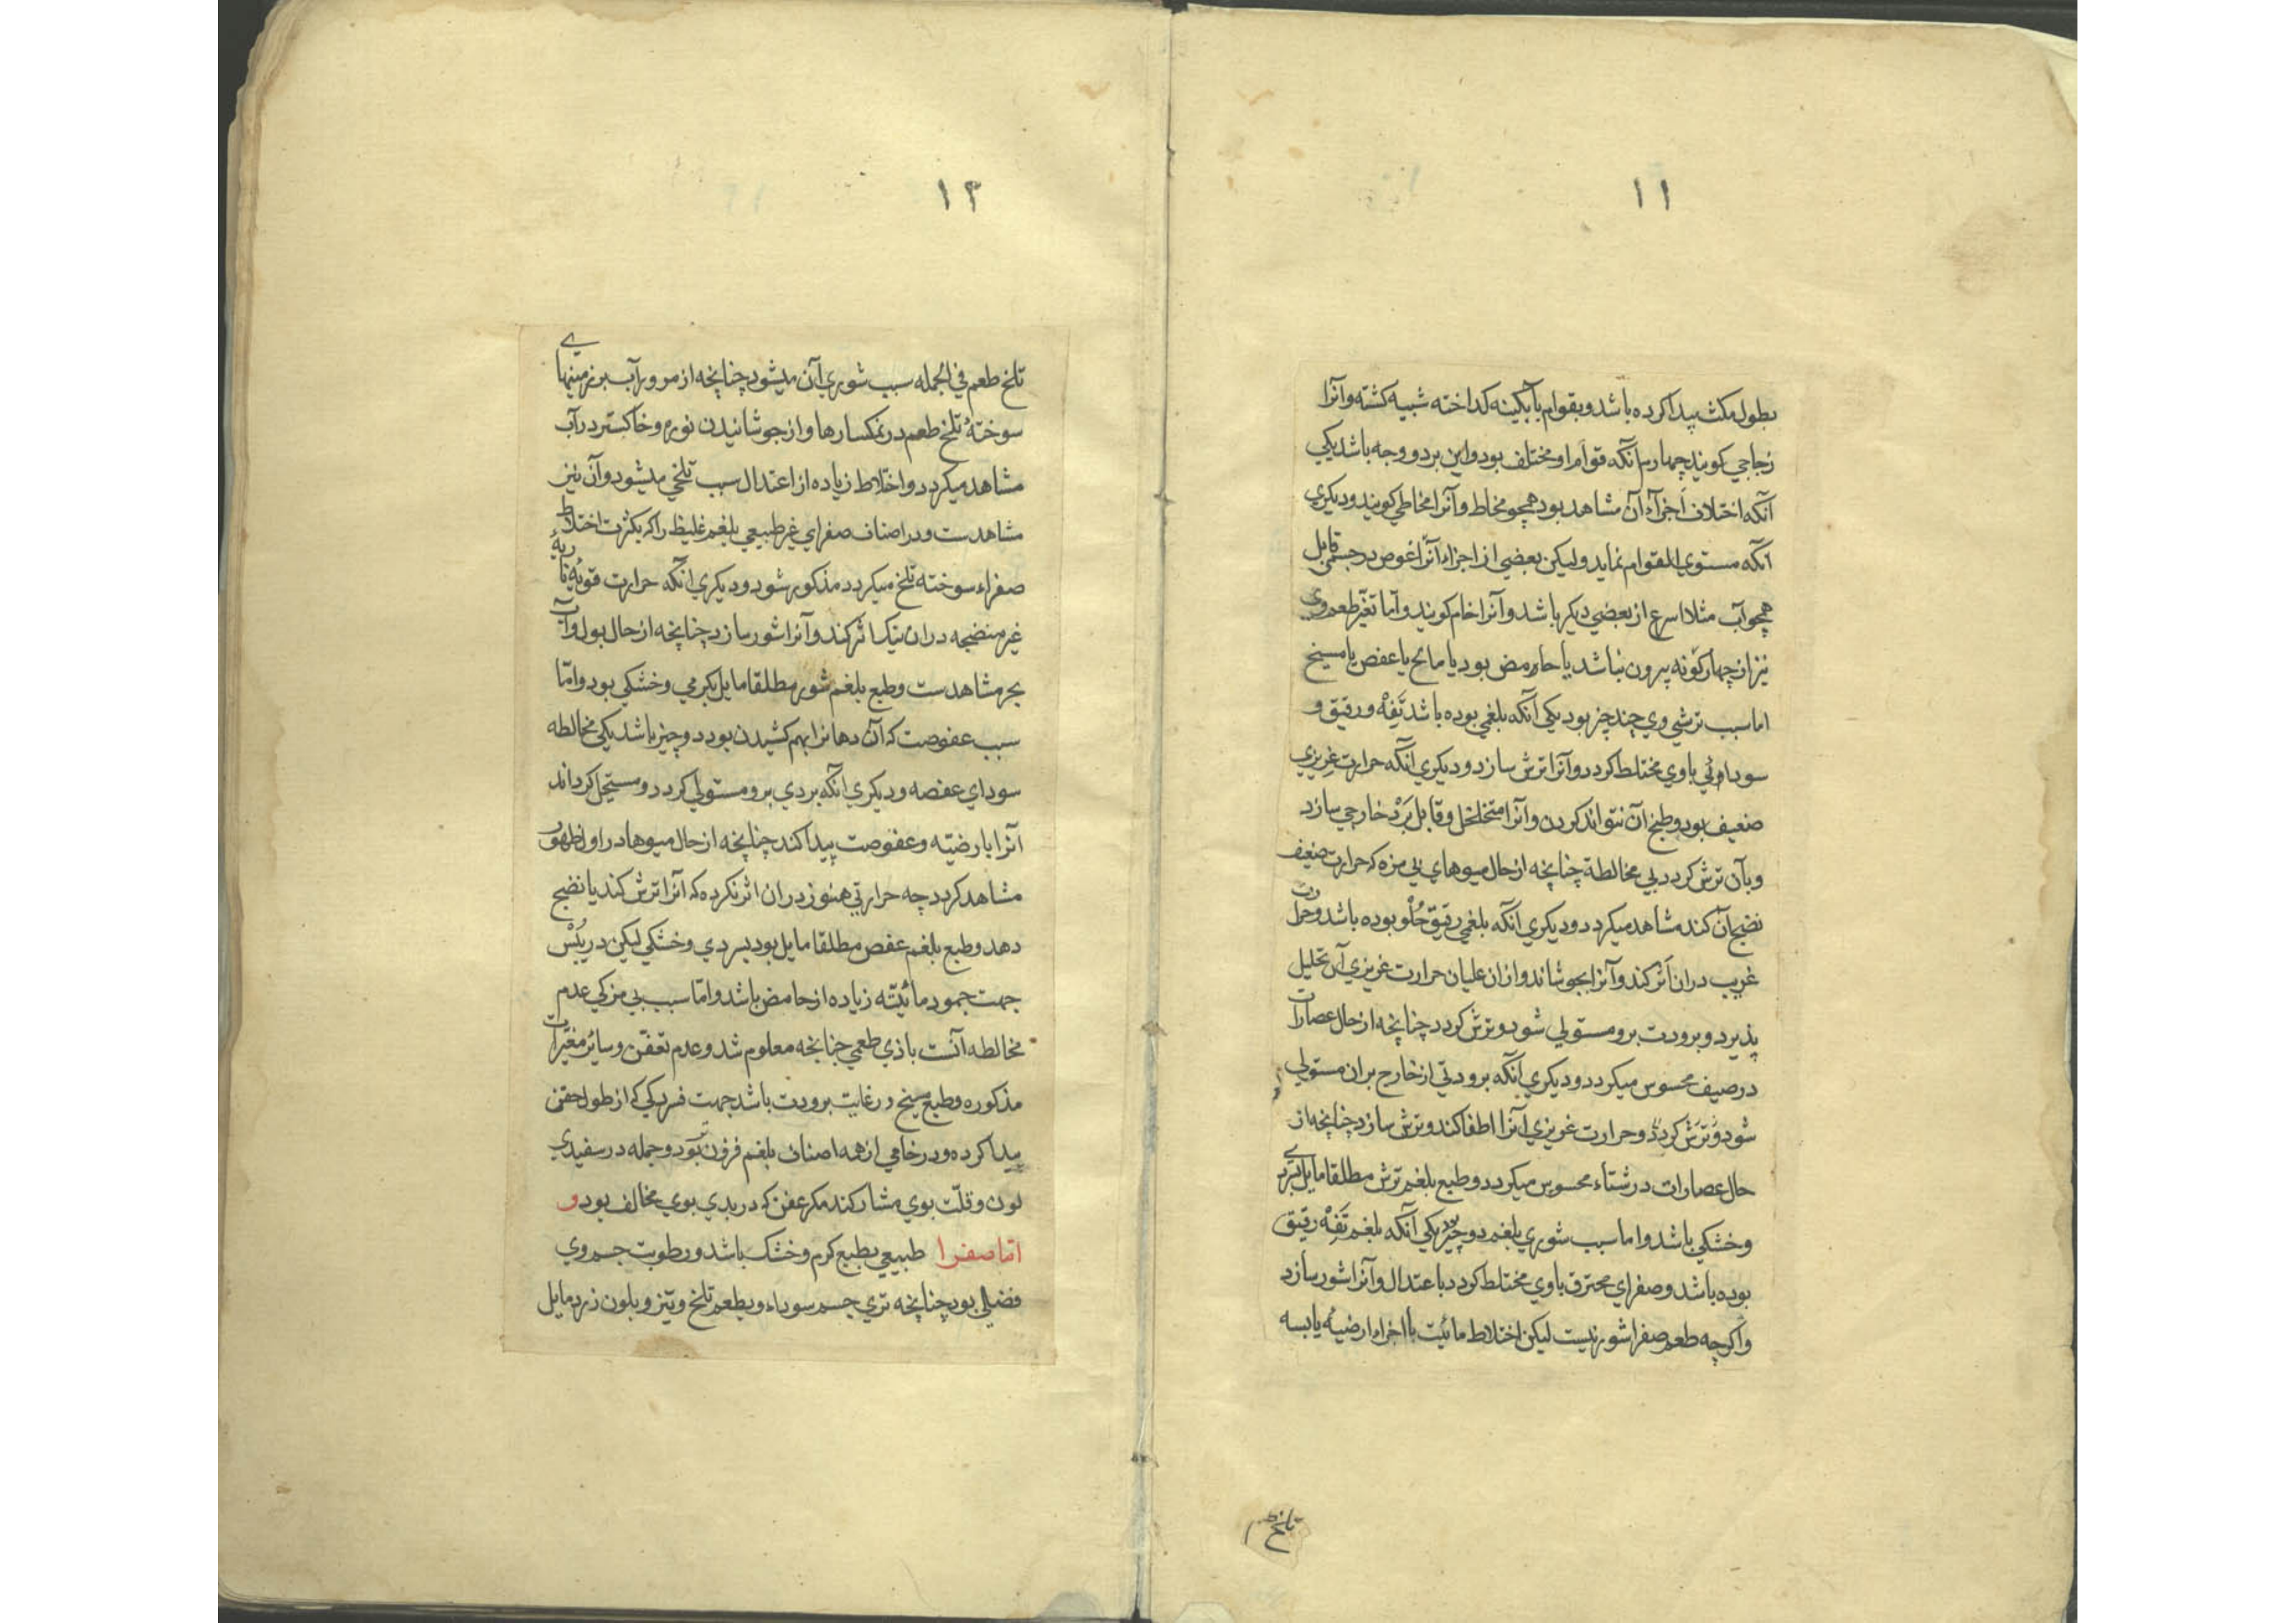 ۱۱
بطول مکث پیدا کرده باشد و بقوام بآبکینه کداخته شبیه کشته و آنرا
زجاجی کویند چهارم آنکه قوام او مختلف بود و این بر دو وجه باشد یکی
آنکه اختلاف اجزآء آن مشاهد بود همچو مخاط و آنرا مخاطی کویند و دیکری
آنکه مستوی القوام نماید و لیکن بعضی از اجزاء آنرا غوص در جسمی قابل
همچو آب مثلا اسرع از بعضی دیکر باشد و آنرا خام کویند و اما تغیّر طعم وی
نیز از چهار کونه بیرون نباشد یا حامض بود یا مالح یا عفص یا مسیخ
اما سبب ترشی وی چند چیز بود یکی آنکه بلغمی بوده باشد تَفِهْ و رقیق و
سوداوئی باوی مختلط کردد و آنرا ترش سازد و دیکری آنکه حرارت غریزی
ضعیف بود و طبخ آن نتواند کردن و آنرا متخلخل و قابل بَرْد خارجی سازد
و بآن ترش کردد بی مخالطة چنانچه از حال میوهای بی مزه که حرارت ضعیف
نضج آن کند مشاهد میکردد و دیکری آنکه بلغمی رقیق حُلْو بوده باشد و حرارت
غریب دران اَثر کند و آنرا بجوشاند و ازان غلیان حرارت غریزی آن تحلیل
پذیرد و برودت برو مستولی شود و ترش کردد چنانچه از حال عصارات
در صیف محسوس میکردد و دیکری آنکه برودتی از خارج بران مستولی
شود و ترش کردد و حرارت غریزی آنرا اطفا کند و ترش سازد چنانچه از
حال عصارات در شتاء محسوس میکردد و طبع بلغم ترش مطلقا مایل بسردی
و خشکی باشد و اما سبب شوری بلغم دو چیز بود یکی آنکه بلغم تَفِهْ رقیق
بوده باشد و صفرای محترق باوی مختلط کردد باعتدال و آنرا شور سازد
و اکرچه طعم صفرا شور نیست لیکن اختلاط مائیت با اجزاء ارضیهٔ یابسه
تلخ طعم
۱۲
تلخ طعم فی الجمله سبب شوری آن میشود چنانچه از مرور آب بر زمینهای
سوختهٔ تلخ طعم در نمکسارها و از جوشانیدن نوره و خاکستر در آب
مشاهد میکردد و اختلاط زیاده از اعتدال سبب تلخی میشود و آن نیز
مشاهدست و در اصناف صفرای غیر طبیعی بلغم غلیظ را که بکثرت اختلاط
صفراء سوخته تلخ میکردد مذکور شود و دیکری آنکه حرارت قویهٔ ناریهٔ
غیر منضجه دران نیک اثر کند و آنرا شور سازد چنانچه از حال بول و آب
بحر مشاهدست و طبع بلغم شور مطلقا مایل بکرمی و خشکی بود و امّا
سبب عفوصت که آن دهانرا بهم کشیدن بود دو چیز باشد یکی مخالطه
سودای عفصه و دیکری آنکه بردی برو مستولی کردد و مستحیل کرداند
آنرا بارضیّه و عفوصت پیدا کند چنانچه از حال میوها در اول ظهور
مشاهد کردد چه حرارتی هنوز دران اثر نکرده که آنرا ترش کند یا نضج
دهد و طبع بلغم عفص مطلقا مایل بود بسردی و خشکی لیکن در یُبْس
جهت جمود مائیّته زیاده از حامض باشد و امّا سبب بی مزکی عدم
مخالطه آنست با ذی طعمی چنانچه معلوم شد و عدم تعفّن و سائر مغیّرات
مذکوره و طبع مسیخ در غایت برودت باشد جهت فسردکی که از طول حقن
پیدا کرده و در خامی از همه اصناف بلغم فزون تر بود و جمله در سفیدی
لون و قلّت بوی مشارکند مکر عفن که در بدی بوی مخالف بود و
امّا صفرا طبیعی بطبع کرم و خشک باشد و رطوبت جسم وی
فضلی بود چنانچه تری جسم سوداء و بطعم تلخ و تیز و بلون زرد مایل